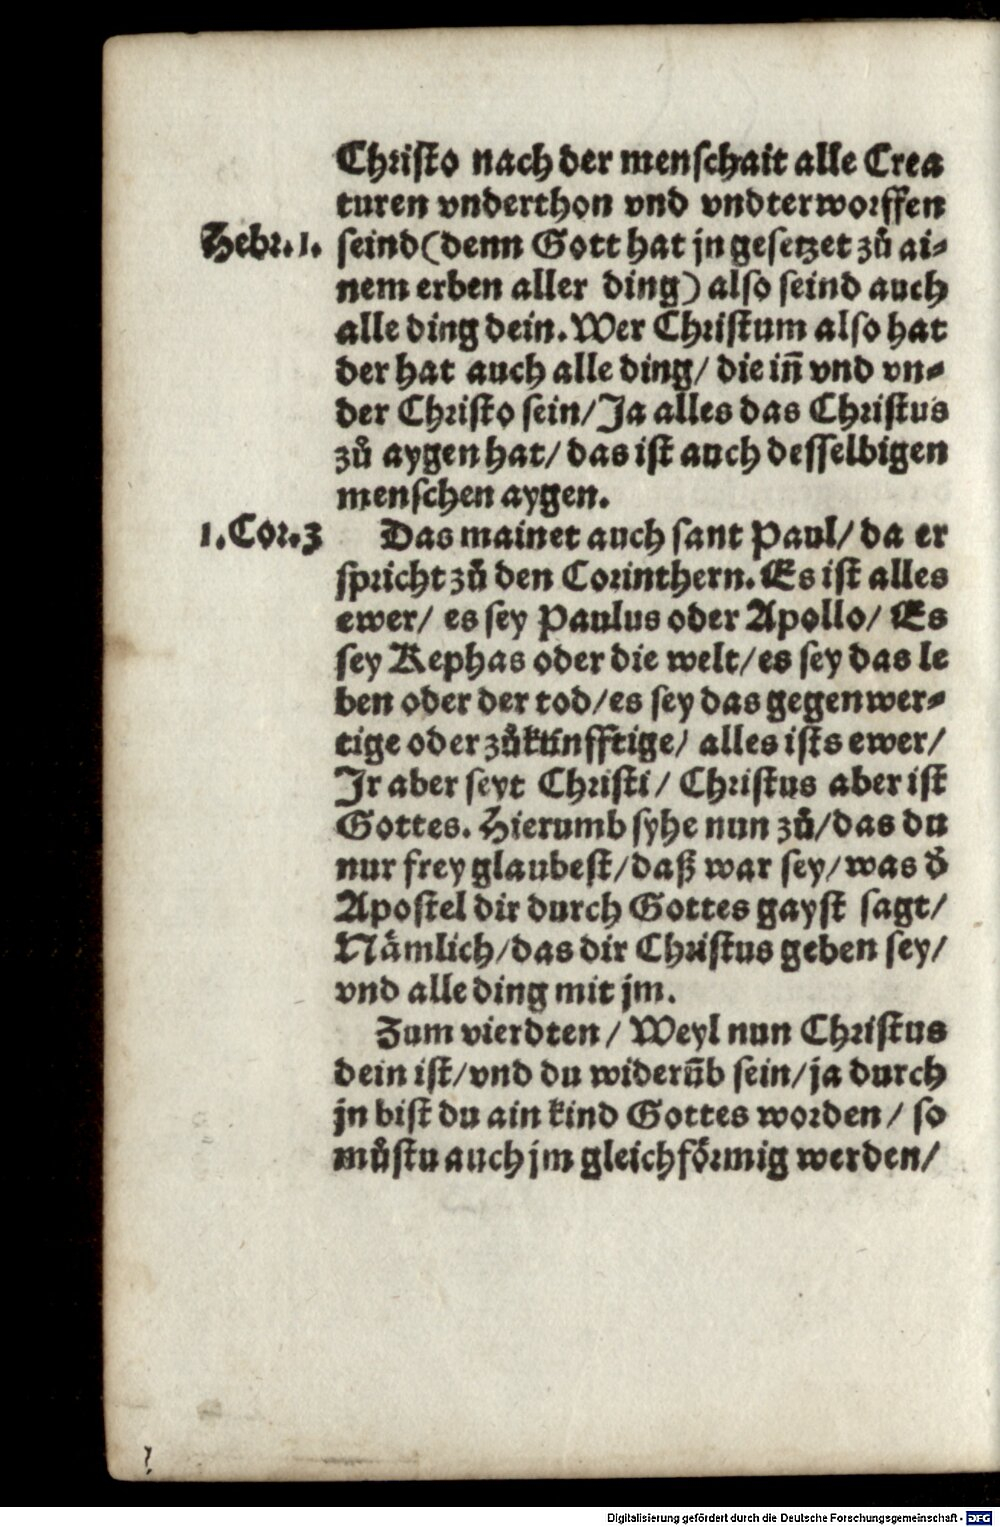 Christo nach der menschait alle Crea
turen vnderthon vnd vndterworffen
Hebr. 1.
seind (denn Gott hat jn gesetzet zů ai-
nem erben aller ding) also seind auch
alle ding dein. Wer Christum also hat
der hat auch alle ding / die iñ vnd vn-
der Christo sein / Ja alles das Christus
zů aygen hat / das ist auch desselbigen
menschen aygen.
1. Cor. 3
Das mainet auch sant Paul / da er
spricht zů den Corinthern. Es ist alles
ewer / es sey Paulus oder Apollo / Es
sey Kephas oder die welt / es sey das le
ben oder der tod / es sey das gegenwer-
tige oder zůkünfftige / alles ists ewer /
Jr aber seyt Christi / Christus aber ist
Gottes. Hierumb syhe nun zů / das du
nur frey glaubest / daß war sey / was d̕
Apostel dir durch Gottes gayst sagt /
Nämlich / das dir Christus geben sey /
vnd alle ding mit jm.
Zum vierdten / Weyl nun Christus
dein ist / vnd du widerũb sein / ja durch
jn bist du ain kind Gottes worden / so
můstu auch jm gleichförmig werden /
Digitalisierung gefördert durch die Deutsche Forschungsgemeinschaft - DFG